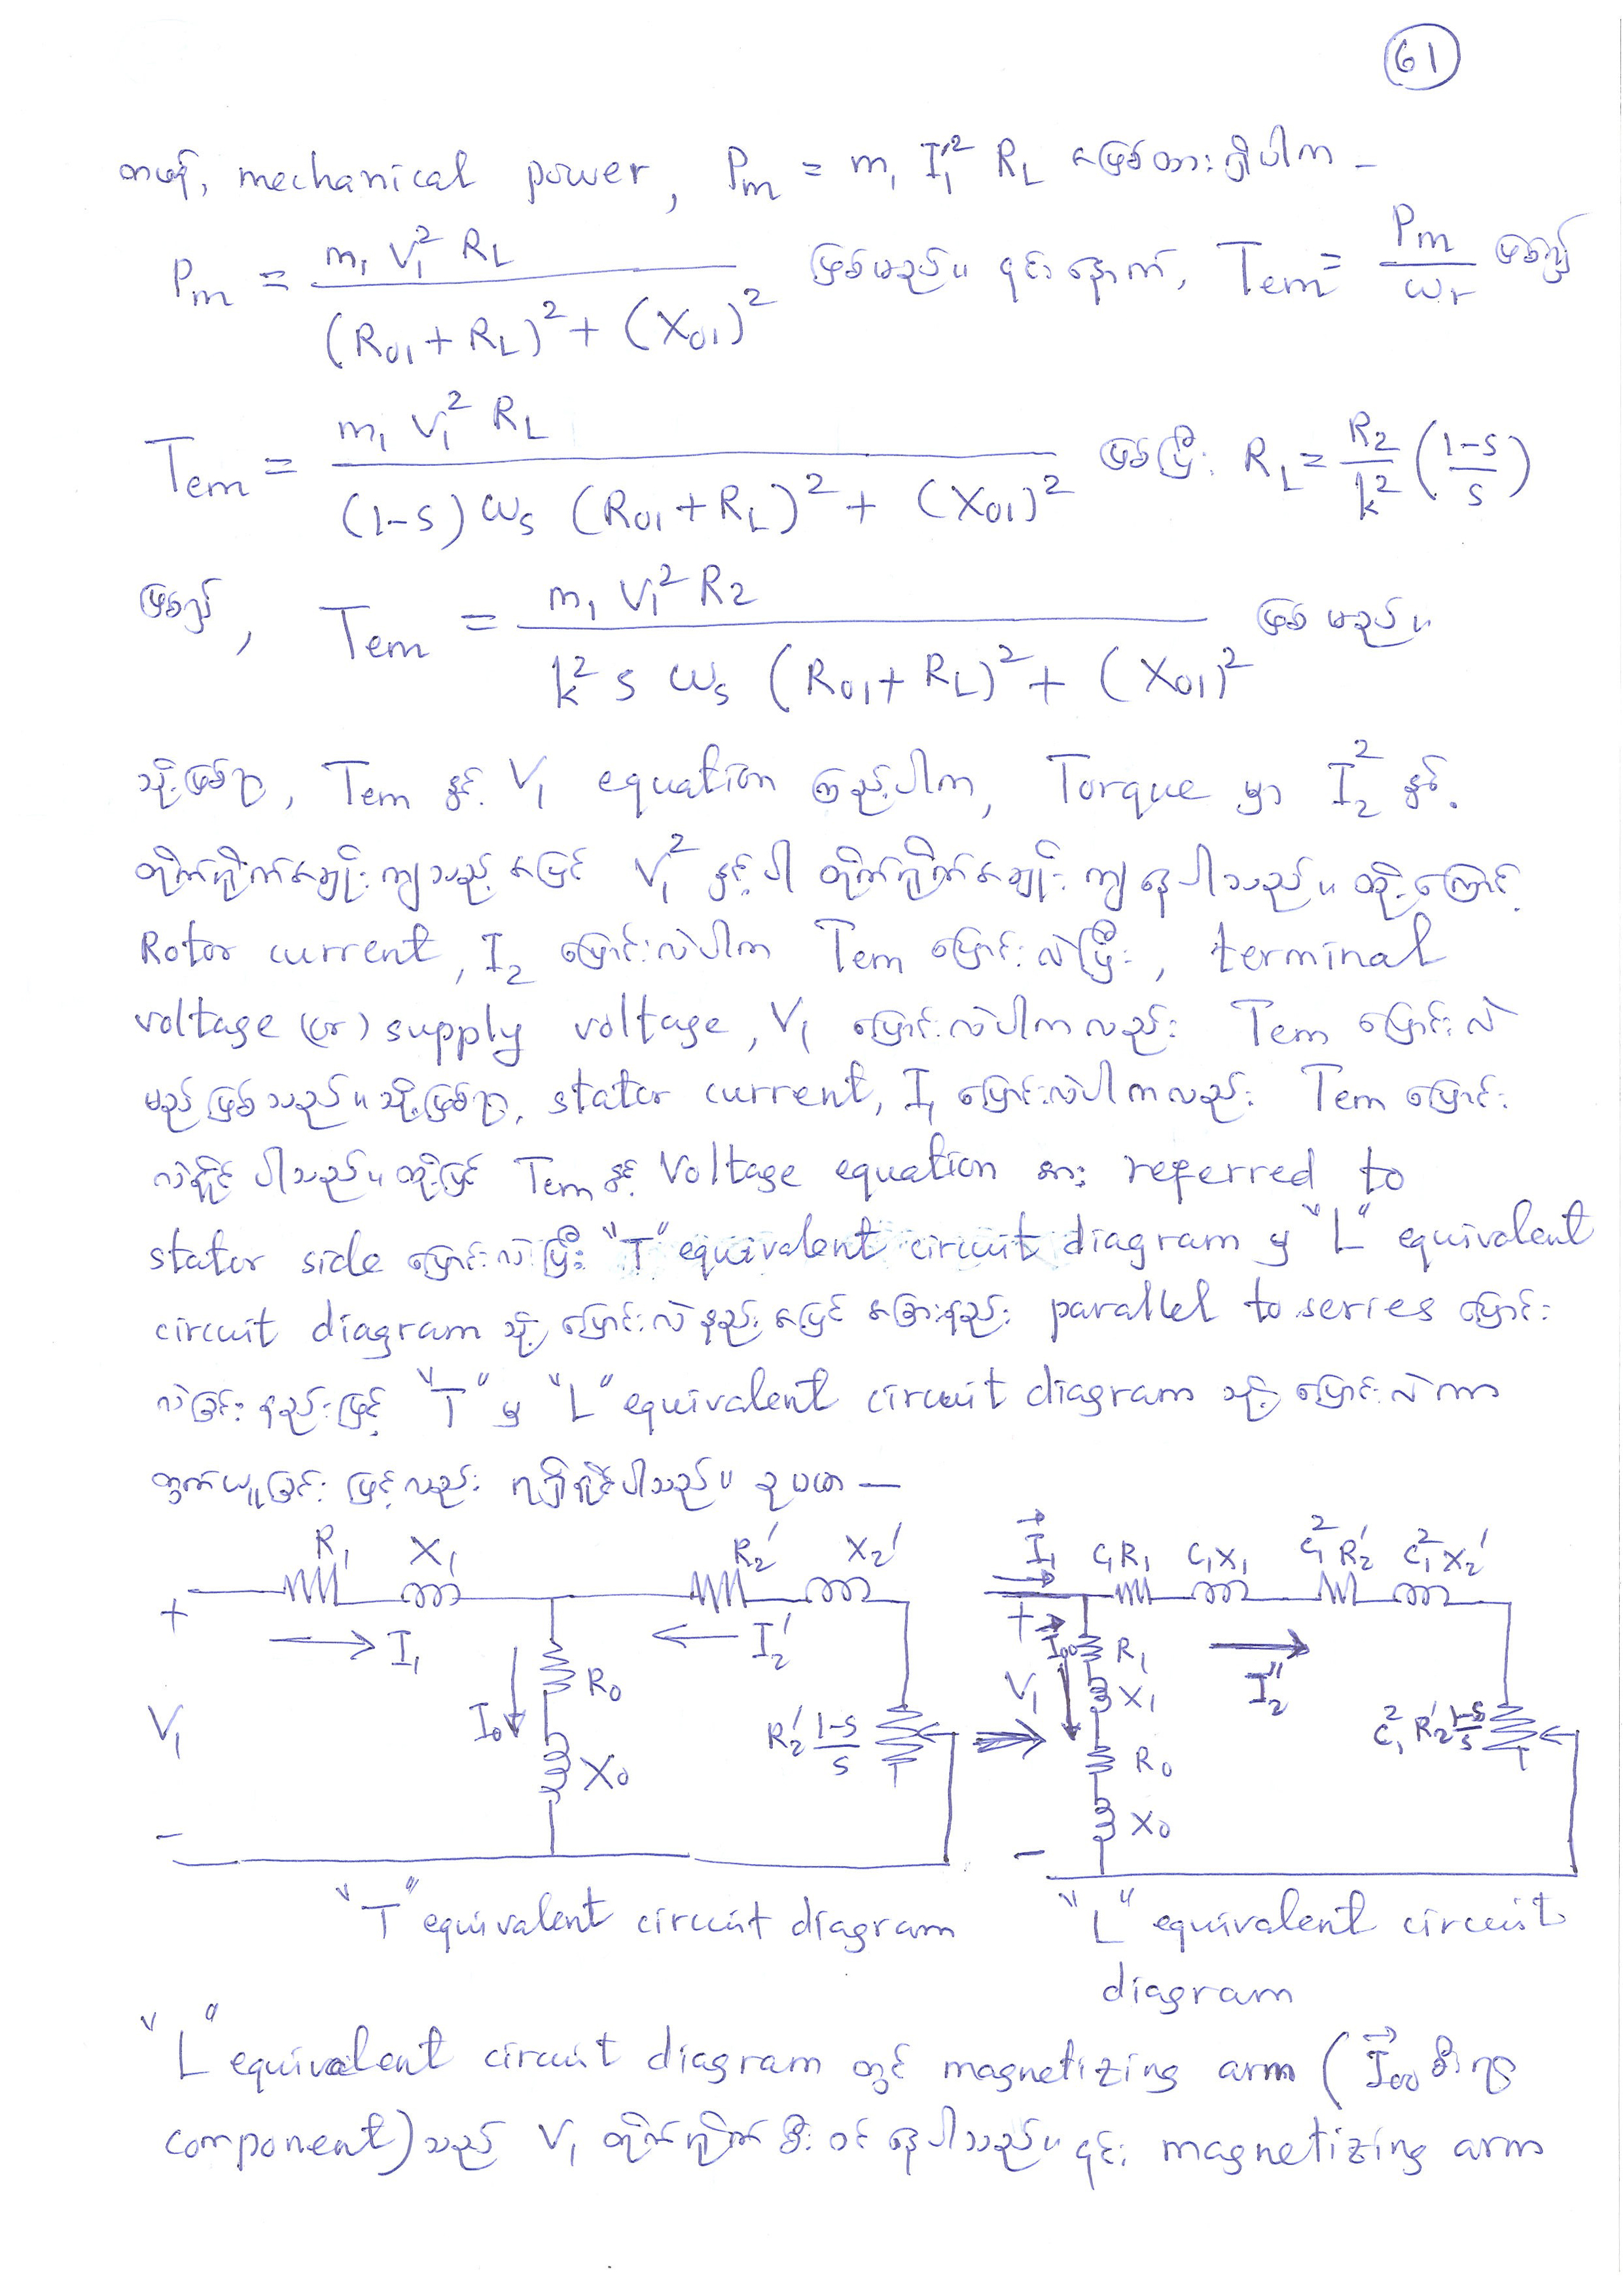 61
တဖန်, mechanical power, Pm = m₁ I₁'² R_L အဖြစ်ထားရှိပါက –
Pm = m₁ V₁² R_L / (R₀₁ + R_L)² + (X₀₁)² ဖြစ်မည်။ ၎င်းနောက်, Tem = Pm / ωr ဖြစ်၍
Tem = m₁ V₁² R_L / (1-s) ωs (R₀₁ + R_L)² + (X₀₁)² ဖြစ်ပြီး R_L = R₂/k² (1-s/s)
ဖြစ်၍, Tem = m₁ V₁² R₂ / k² s ωs (R₀₁ + R_L)² + (X₀₁)² ဖြစ်မည်။
သို့ဖြစ်ရာ, Tem နှင့် V₁ equation ကြည့်ပါက, Torque မှာ I₂² နှင့်
တိုက်ရိုက်အချိုးကျသည့်အပြင် V₁² နှင့်ပါ တိုက်ရိုက်အချိုးကျနေပါသည်။ ထို့ကြောင့်
Rotor current, I₂ ပြောင်းလဲပါက Tem ပြောင်းလဲပြီး, terminal
voltage (or) supply voltage, V₁ ပြောင်းလဲပါကလည်း Tem ပြောင်းလဲ
မည်ဖြစ်သည်။ သို့ဖြစ်ရာ, stator current, I₁ ပြောင်းလဲပါကလည်း Tem ပြောင်း
လဲနိုင်ပါသည်။ ထို့ပြင် Tem နှင့် Voltage equation အား referred to
stator side ပြောင်းလဲပြီး "T" equivalent circuit diagram မှ "L" equivalent
circuit diagram သို့ ပြောင်းလဲနည်းအပြင် အခြားနည်း parallel to series ပြောင်း
လဲခြင်းနည်းဖြင့် "T" မှ "L" equivalent circuit diagram သို့ ပြောင်းလဲကာ
တွက်ယူခြင်းဖြင့်လည်း ရရှိနိုင်ပါသည်။ ဥပမာ –
R₁ X₁ R₂' X₂' I₁ C₁R₁ C₁X₁ C₁²R₂' C₁²X₂'
+ I₁ I₂' + I₀₀ R₁ I₂''
V₁ I₀ R₀ R₂' 1-s/s V₁ X₁ C₁² R₂' 1-s/s
X₀ R₀
- - X₀
"T" equivalent circuit diagram "L" equivalent circuit
diagram
"L" equivalent circuit diagram တွင် magnetizing arm (I₀₀ စီးရာ
component) သည် V₁ တိုက်ရိုက်စီးဝင်နေပါသည်။ ၎င်း magnetizing arm